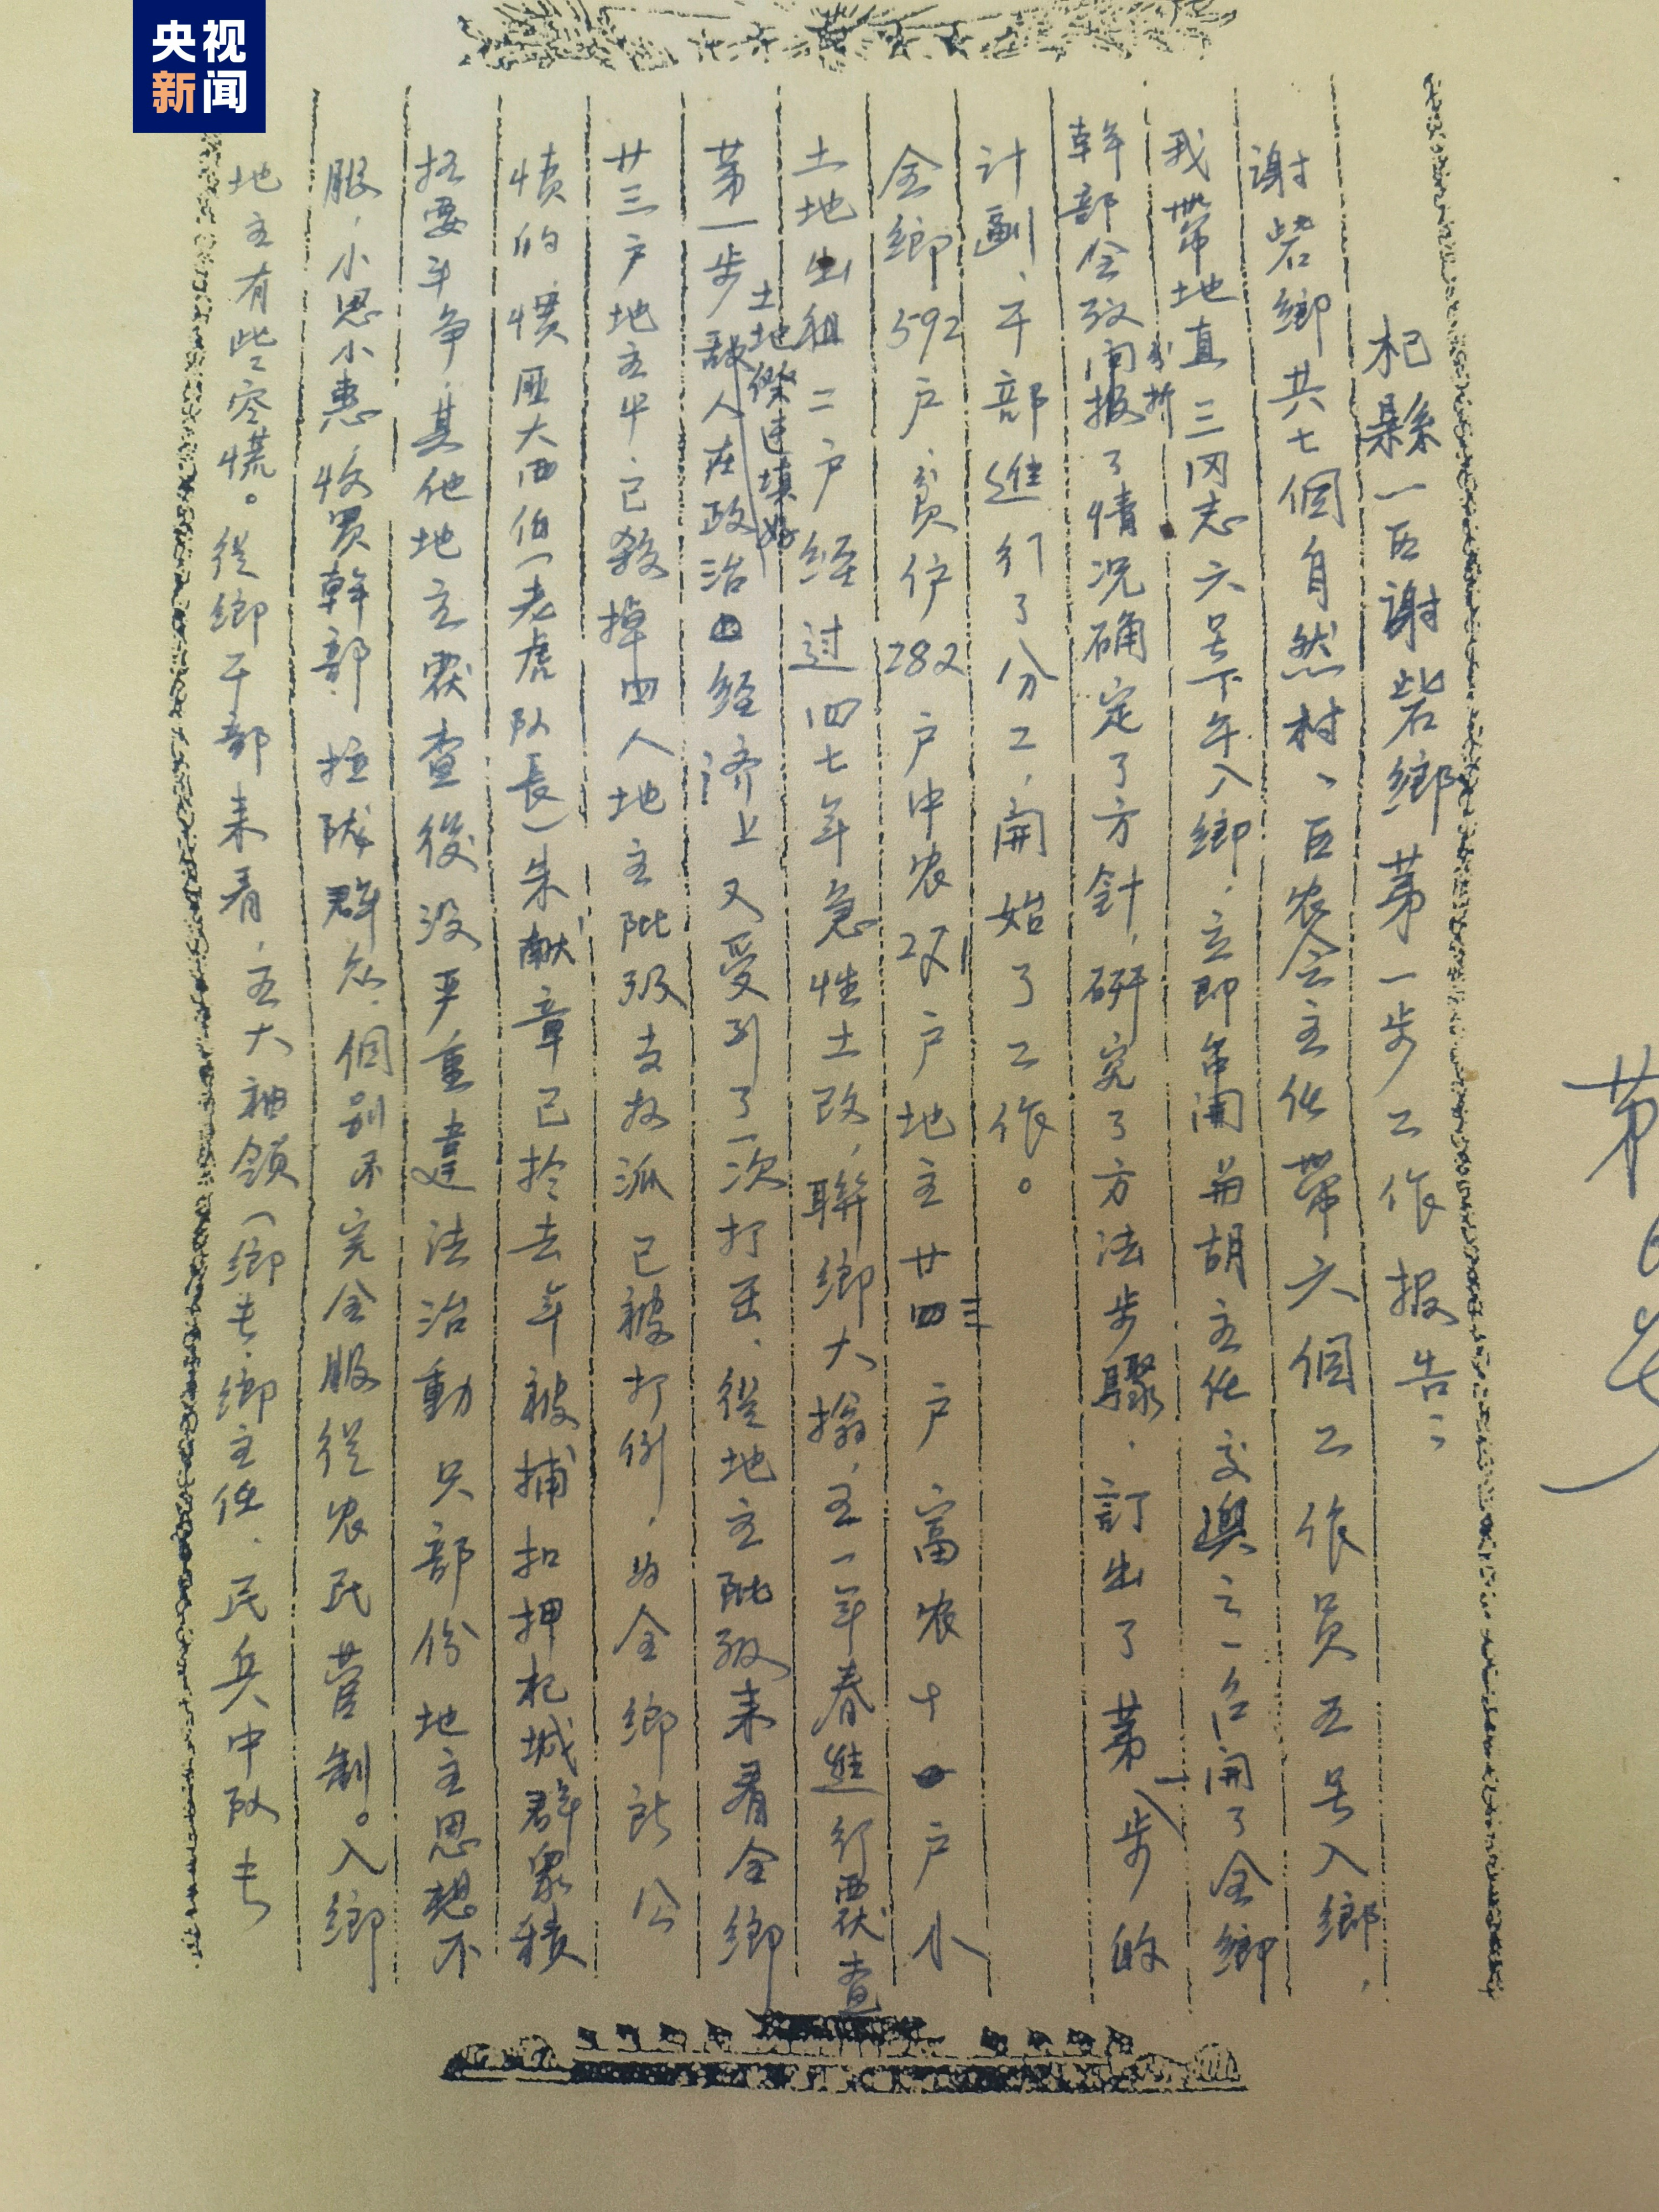 央视
新闻
杞縣一区谢砦鄉第一步工作报告：
谢砦鄉共七個自然村、区农会主任带六個工作员五号入鄉，
我带地直三同志六号下午入鄉，立即召開 胡主任交与之一 開了全鄉
幹部会
分析
报了情况确定了方針，研究了方法步驟，訂出了第一步的
计劃，干部進行了分工，開始了工作。
全鄉592户，貧僱282户中农271户地主廿三户富农十 户小
土地出租二户经过四七年急性土改，聯鄉大搧，五一年春進行覆查
土地 連填好
第一步 敵人在政治 经济上又受到了一次打击，從地主阶级来看全鄉
廿三户地主中，已殺掉四人地主阶级支 派已被打倒，为全鄉所公
愤的惯匪大西伯（老虎队長）朱献章已於去年被捕扣押杞城群衆积
极要斗争，其他地主覆查後没严重違法活動只部份地主思想不
服，小恩小惠，收買幹部，拉拢群众，個别不完全服從农民管制。入鄉
地主有些恐慌。從鄉干部来看，五大袖领（鄉長，鄉主任，民兵中队長
第